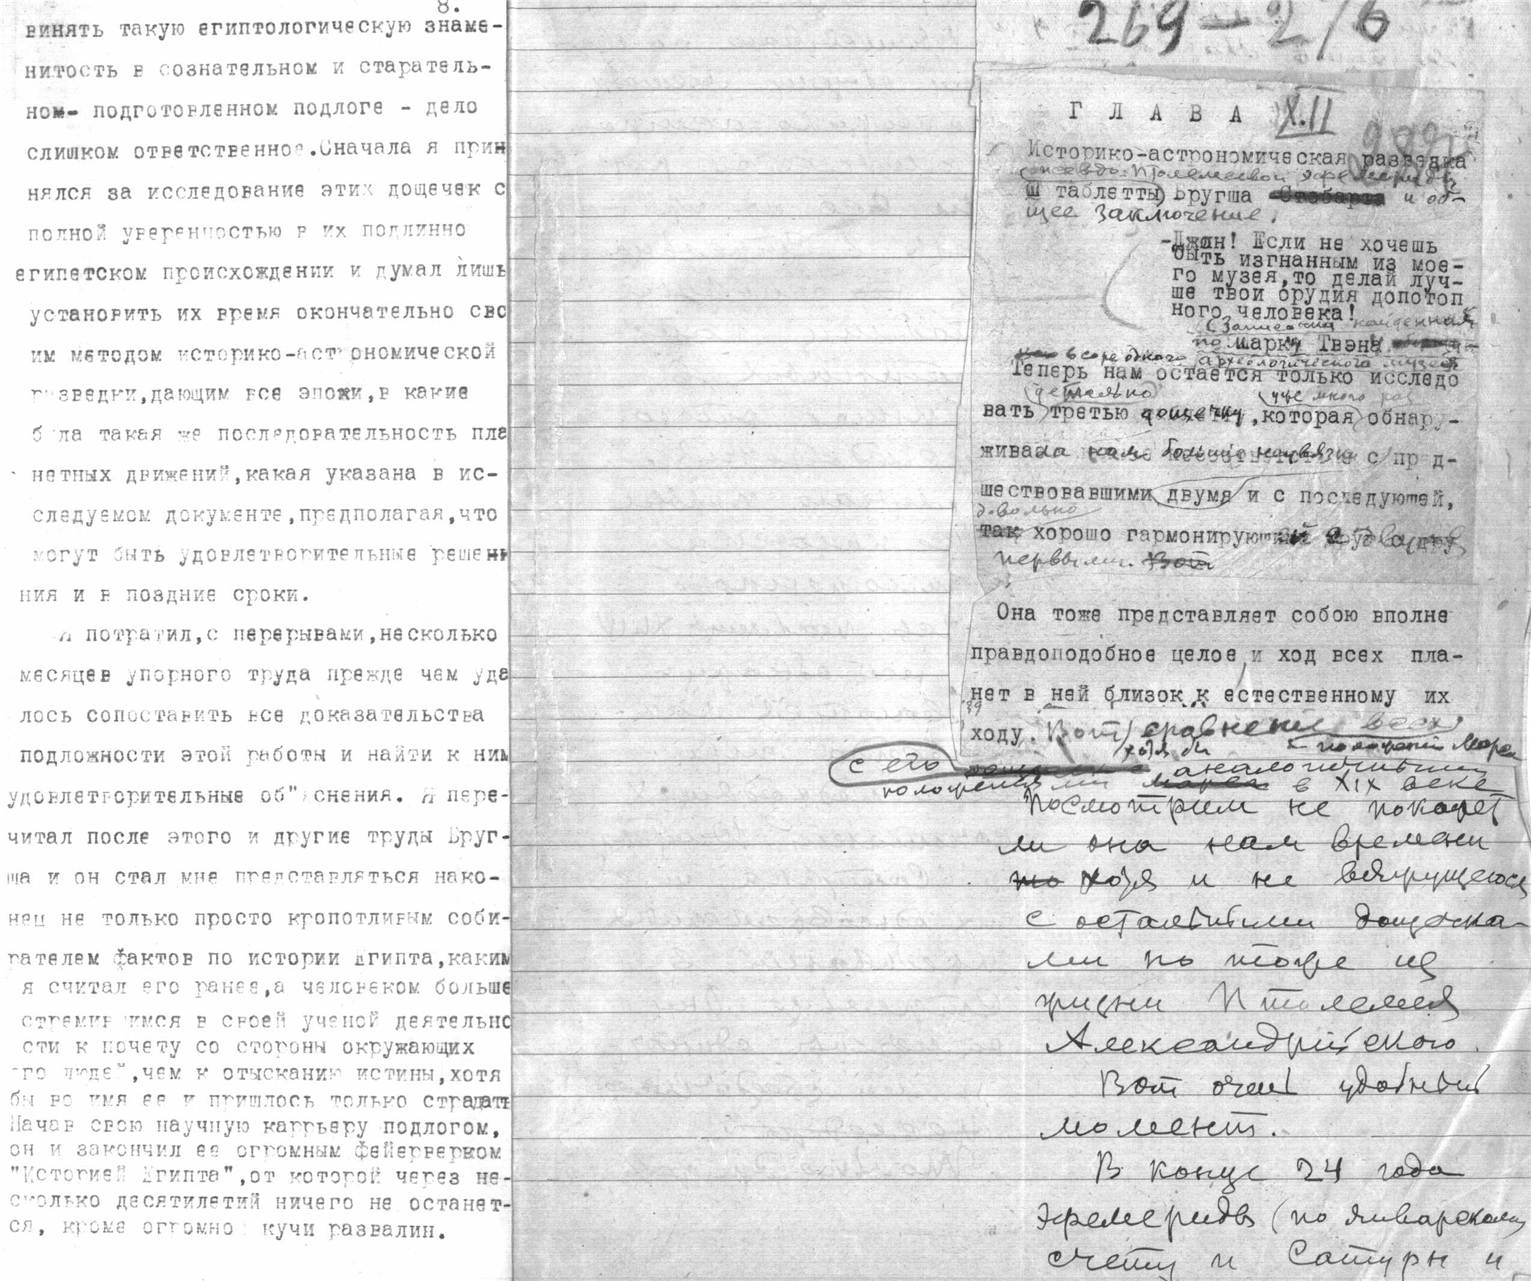 8.
винять такую египтологическую знаме-
нитость в сознательном и старатель-
ном- подготовленном подлоге - дело
слишком ответственное.Сначала я прин
нялся за исследование этих дощечек с
полной уверенностью в их подлинно
египетском происхождении и думал лишь
установить их время окончательно сво
им методом историко-астрономической
разведки,дающим все эпохи,в какие
была такая же последовательность пла
нетных движений,какая указана в ис-
следуемом документе,предполагая,что
могут быть удовлетворительные решен
ния и в поздние сроки.
Я потратил,с перерывами,несколько
месяцев упорного труда прежде чем уда
лось сопоставить все доказательства
подложности этой работы и найти к ним
удовлетворительные об"яснения. Я пере-
читал после этого и другие труды Бруг-
ша и он стал мне представляться нако-
нец не только просто кропотливым соби-
рателем фактов по истории Египта,каким
я считал его ранее,а человеком больше
стремившимся в своей ученой деятельно
сти к почету со стороны окружающих
его людей,чем к отысканию истины,хотя
бы во имя ее и пришлось только страдать
Начав свою научную каррьеру подлогом,
он и закончил ее огромным фейерверком
"Историей Египта",от которой через не-
сколько десятилетий ничего не останет-
ся, кроме огромной кучи развалин.
269 - 276
ГЛАВА XII
Историко-астрономическая разведка
псевдо-Птолемеевой эфемериды
таблетты Бругша Стобарта и об-
щее заключение.
-Джон! Если не хочешь
быть изгнанным из мое-
го музея,то делай луч-
ше твои орудия допотоп
ного человека!
(Записочка найденная
по Марку Твэна
в соре одного археологического музея
Теперь нам остается только исследо
детально уже много раз
вать третью дощечку,которая обнару-
живала нам с пред-
шествовавшими двумя и с последующей,
довольно
так хорошо гармонирующей с
первыми. Вот
Она тоже представляет собою вполне
правдоподобное целое и ход всех пла-
нет в ней близок к естественному их
ходу. Вот сравнение всех
хотя бы положений Марса
с его аналогичными
положениями Марса в XIX веке
Посмотрим не покажет
ли она нам времени
то хотя и не вяжущегося
с остальными дощечка-
ми но тоже из
жизни Птолемея
Александрийского.
Вот очень удобный
момент.
В конце 24 года
эфемериды (по январскому
счету и Сатурн и